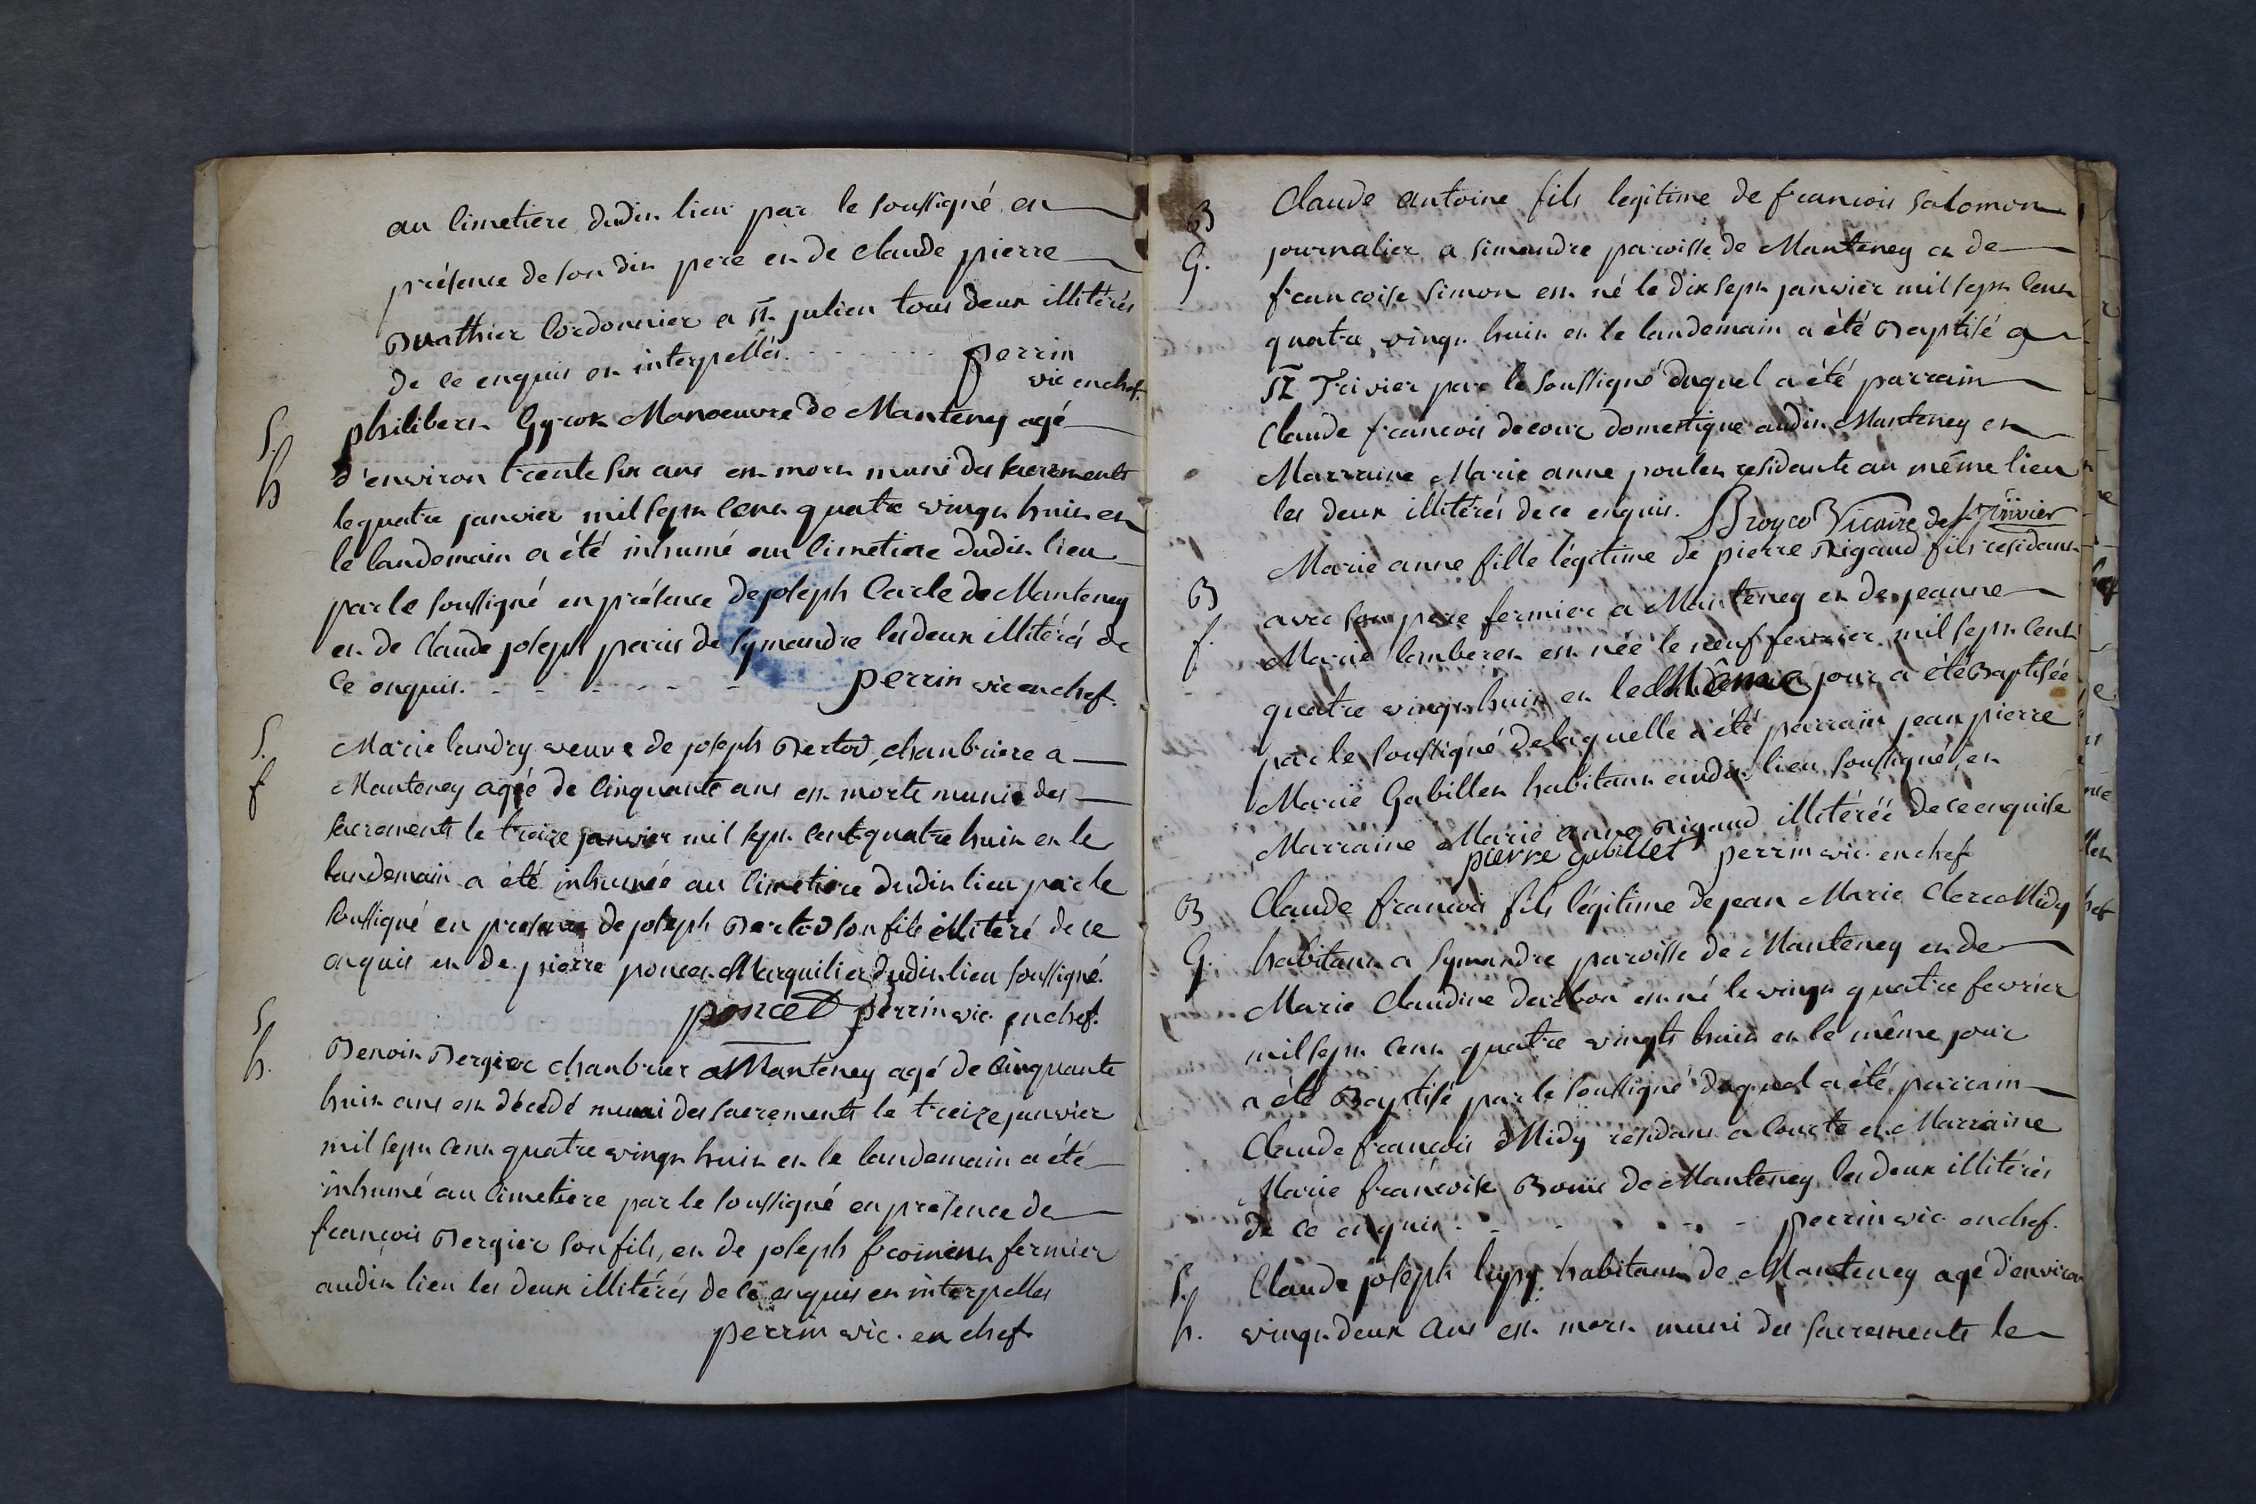 au cimetiere dudit lieu par le soussigné en
présence de son dit pere et de claude pierre
Buathier Cordonnier a St. julien tous deux illitérés
de ce enquis et interpellés. perrin
vic en chef.
S. h
philibert Gyrox Manoeuvre de Manteney agé
d'environ trente six ans est mort muni des sacrements
le quatre janvier mil sept cent quatre vingt huit et
le landemain a été inhumé au cimetiere dudit lieu
par le soussigné en présence de joseph Carle de Manteney
et de claude joseph paris de Symandre les deux illitérés de
ce enquis. perrin vic en chef.
S. f
Marie landry veuve de joseph Bertod, chanbriere a
Manteney agée de cinquante ans est morte munie des
sacrements le treize janvier mil sept cent quatre huit et le
landemain a été inhumée au cimetiere dudit lieu par le
soussigné en presence de joseph Bertod son fils illitéré de ce
enquis et de pierre poncet Marguilier dudit lieu soussigné.
poncet perrin vic. en chef.
S. h.
Benoit Bergier chanbrier a Manteney agé de cinquante
huit ans est décédé muni des sacrements le treize janvier
mil sept cent quatre vingt huit et le landemain a été
inhumé au cimetiere par le soussigné en présence de
françois Bergier son fils, et de joseph froment fermier
audit lieu les deux illitérés de ce enquis et interpellés
perrin vic. en chef.
B G.
Claude antoine fils legitime de francois salomon
journalier a simandre paroisse de Manteney et de
francoise simon est né le dix sept janvier mil sept cent
quatre vingt huit et le landemain a été Baptisé a
St Trivier par le soussigné duquel a été parrain
claude francois decour domestique audit Manteney et
Marraine Marie anne poulet residante au même lieu
les deux illitérés de ce enquis. Broyer Vicaire de St trivier
B f.
Marie anne fille légitime de pierre Rigaud fils residant
avec son pere fermier a Manteney et de jeanne
Marie lamberet est née le neuf fevrier mil sept cent
quatre vingt huit et le même jour a été Baptisée
par le soussigné de laquelle a été parrain jean pierre
Marie Gabillet habitant audit lieu soussigné, et
Marraine Marie anne Rigaud illitérée de ce enquise
pierre gabillet perrin vic. en chef
B G.
Claude francois fils légitime de jean Marie Clerc Midy
habitant a Symandre paroisse de Manteney et de
Marie Claudine derebon est né le vingt quatre fevrier
mil sept cent quatre vingts huit et le même jour
a été Baptisé par le soussigné duquel a été parrain
Claude francois Midy résidant a Courte et Marraine
Marie francoise Bouis de Manteney les deux illitérés
de ce enquis. perrin vic. en chef.
S. h.
Claude joseph lupy habitant de Manteney agé d'environ
vingt deux ans est mort muni des sacrements le